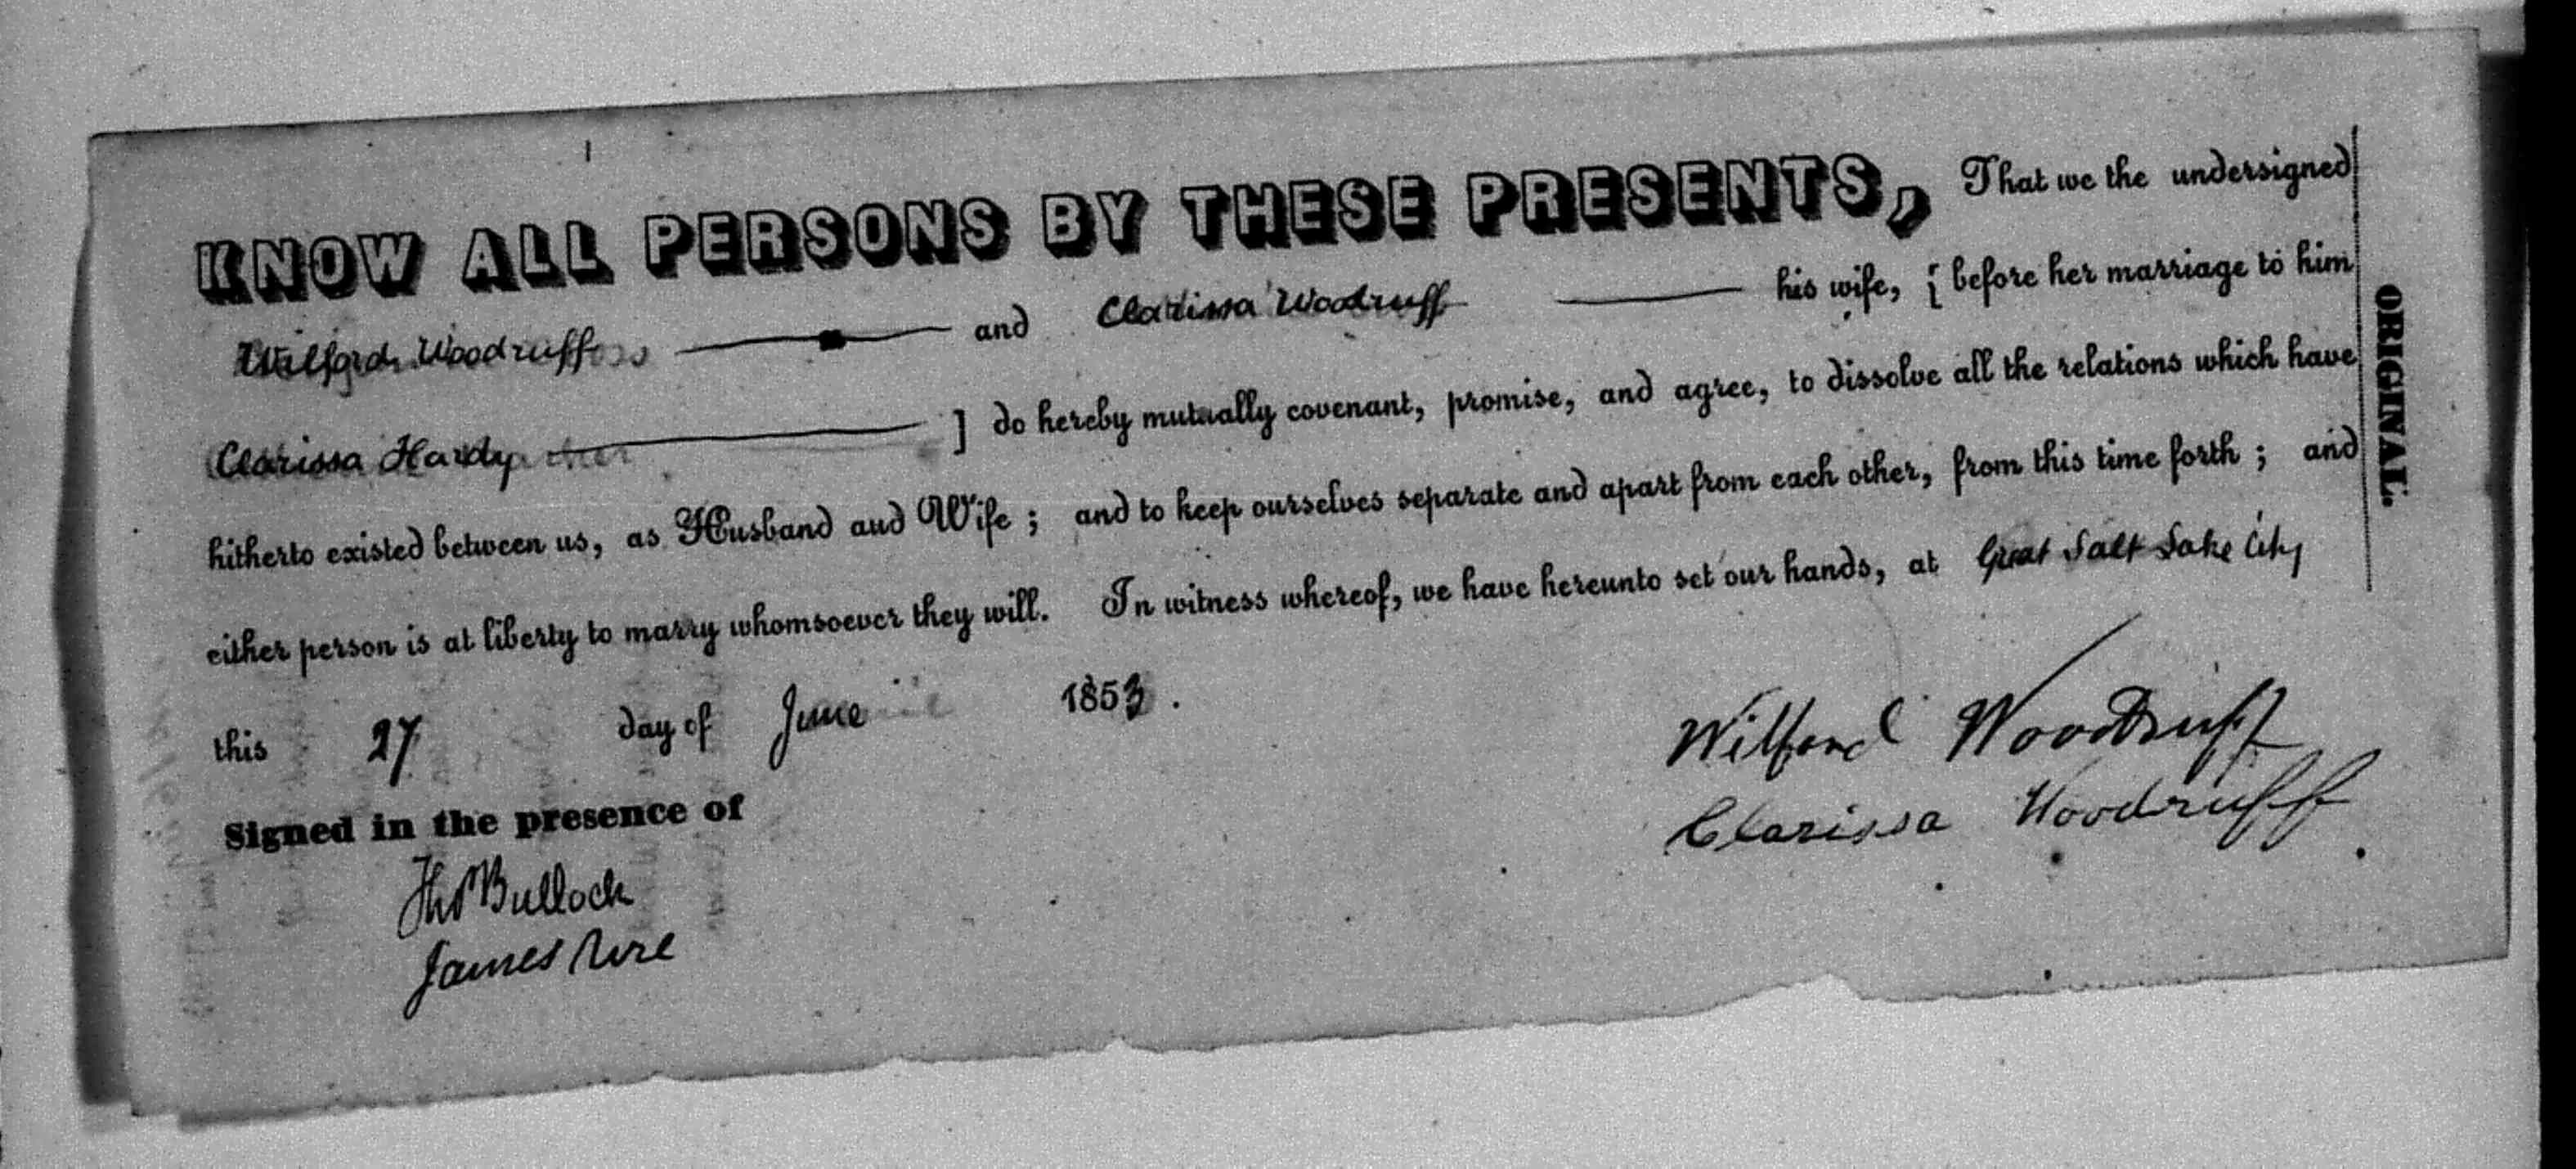 KNOW ALL PERSONS BY THESE PRESENTS, That we the undersigned
Wilford Woodruff and Clarissa Woodruff his wife, [ before her marriage to him
Clarissa Hardy ] do hereby mutually covenant, promise, and agree, to dissolve all the relations which have
hitherto existed between us, as Husband aud Wife ; and to keep ourselves separate and apart from each other, from this time forth ; and
either person is at liberty to marry whomsoever they will. In witness whereof, we have hereunto set our hands, at Great Salt Lake City
this 27 day of June 1853 .
Wilford Woodruff
Clarissa Woodruff
Signed in the presence of
Thos Bullock
James
ORIGINAL.